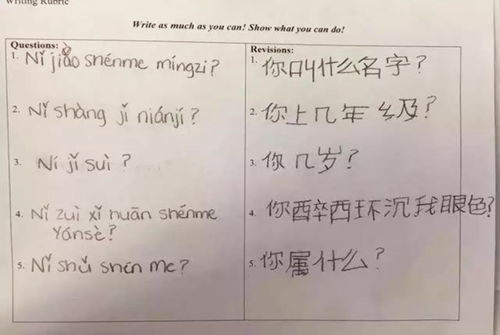 Writing Rubric
Write as much as you can! Show what you can do!
Questions:
1. Nǐ jiǎo shénme míngzi?
2. Nǐ shàng jǐ niánjí?
3. Ní jǐ suì?
4. Nǐ zuì xǐ huān shénme
Yánsè?
5. Nǐ shǔ shén me?
Revisions:
1. 你叫什么名字?
2. 你上几年级?
3. 你几岁?
4. 你醉西环沉我眼色?
5. 你属什么?